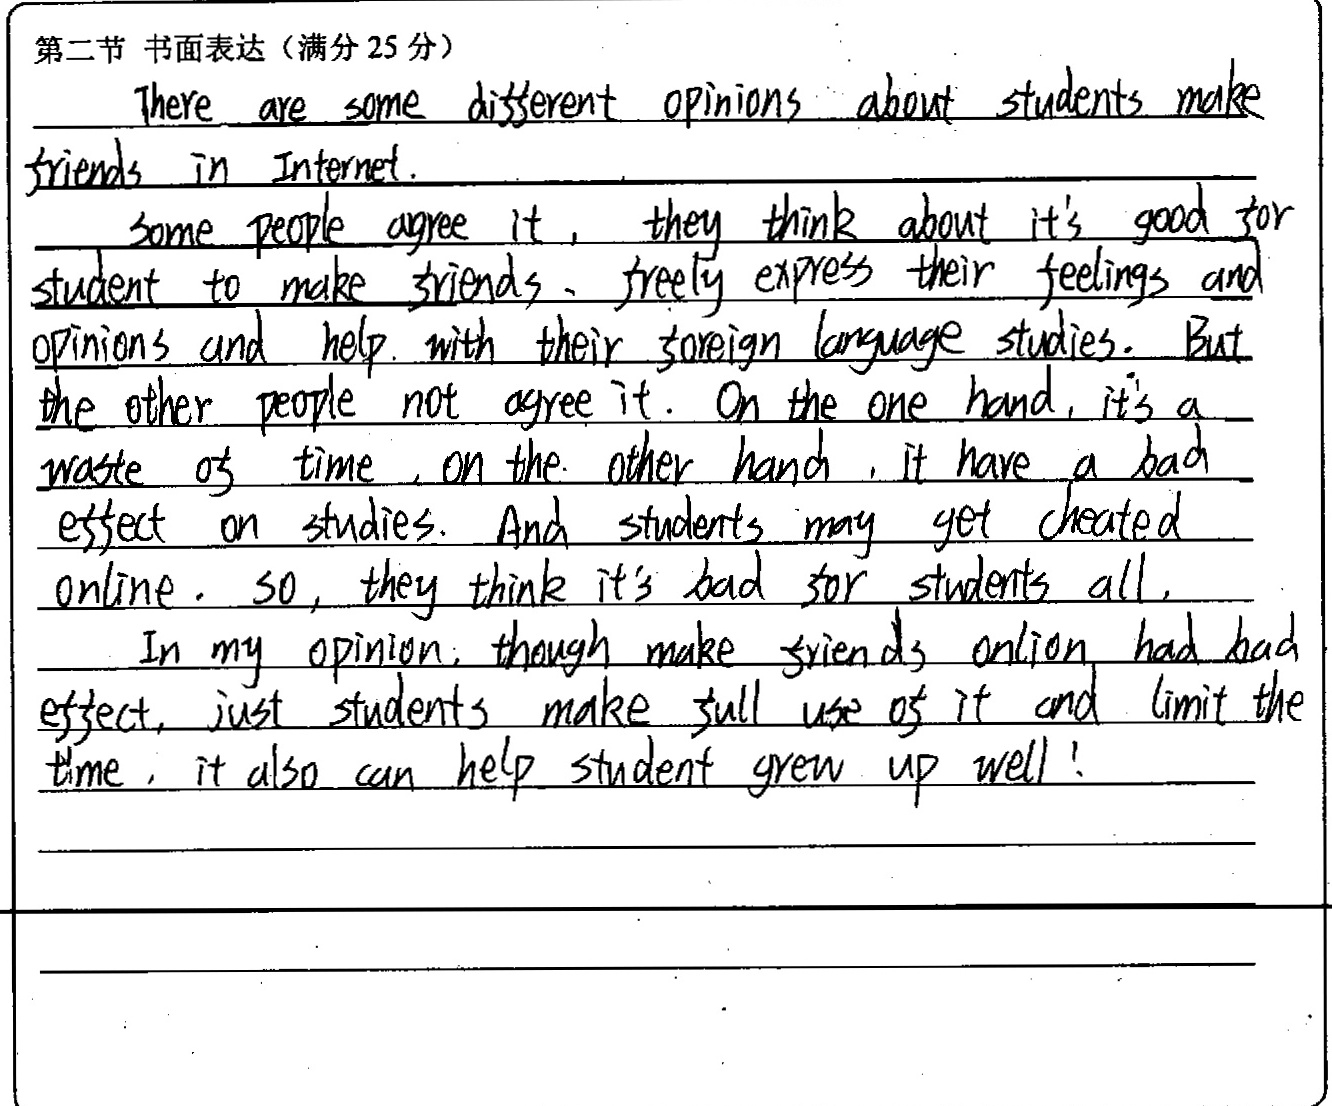 第二节 书面表达（满分 25 分）
There are some different opinions about students make
friends in Internet.
Some people agree it, they think about it's good for
student to make friends、freely express their feelings and
opinions and help with their foreign language studies. But
the other people not agree it. On the one hand, it's a
waste of time, on the other hand, it have a bad
effect on studies. And students may get cheated
online. so, they think it's bad for students all.
In my opinion, though make friends onlion had bad
effect, just students make full use of it and limit the
time, it also can help student grew up well!